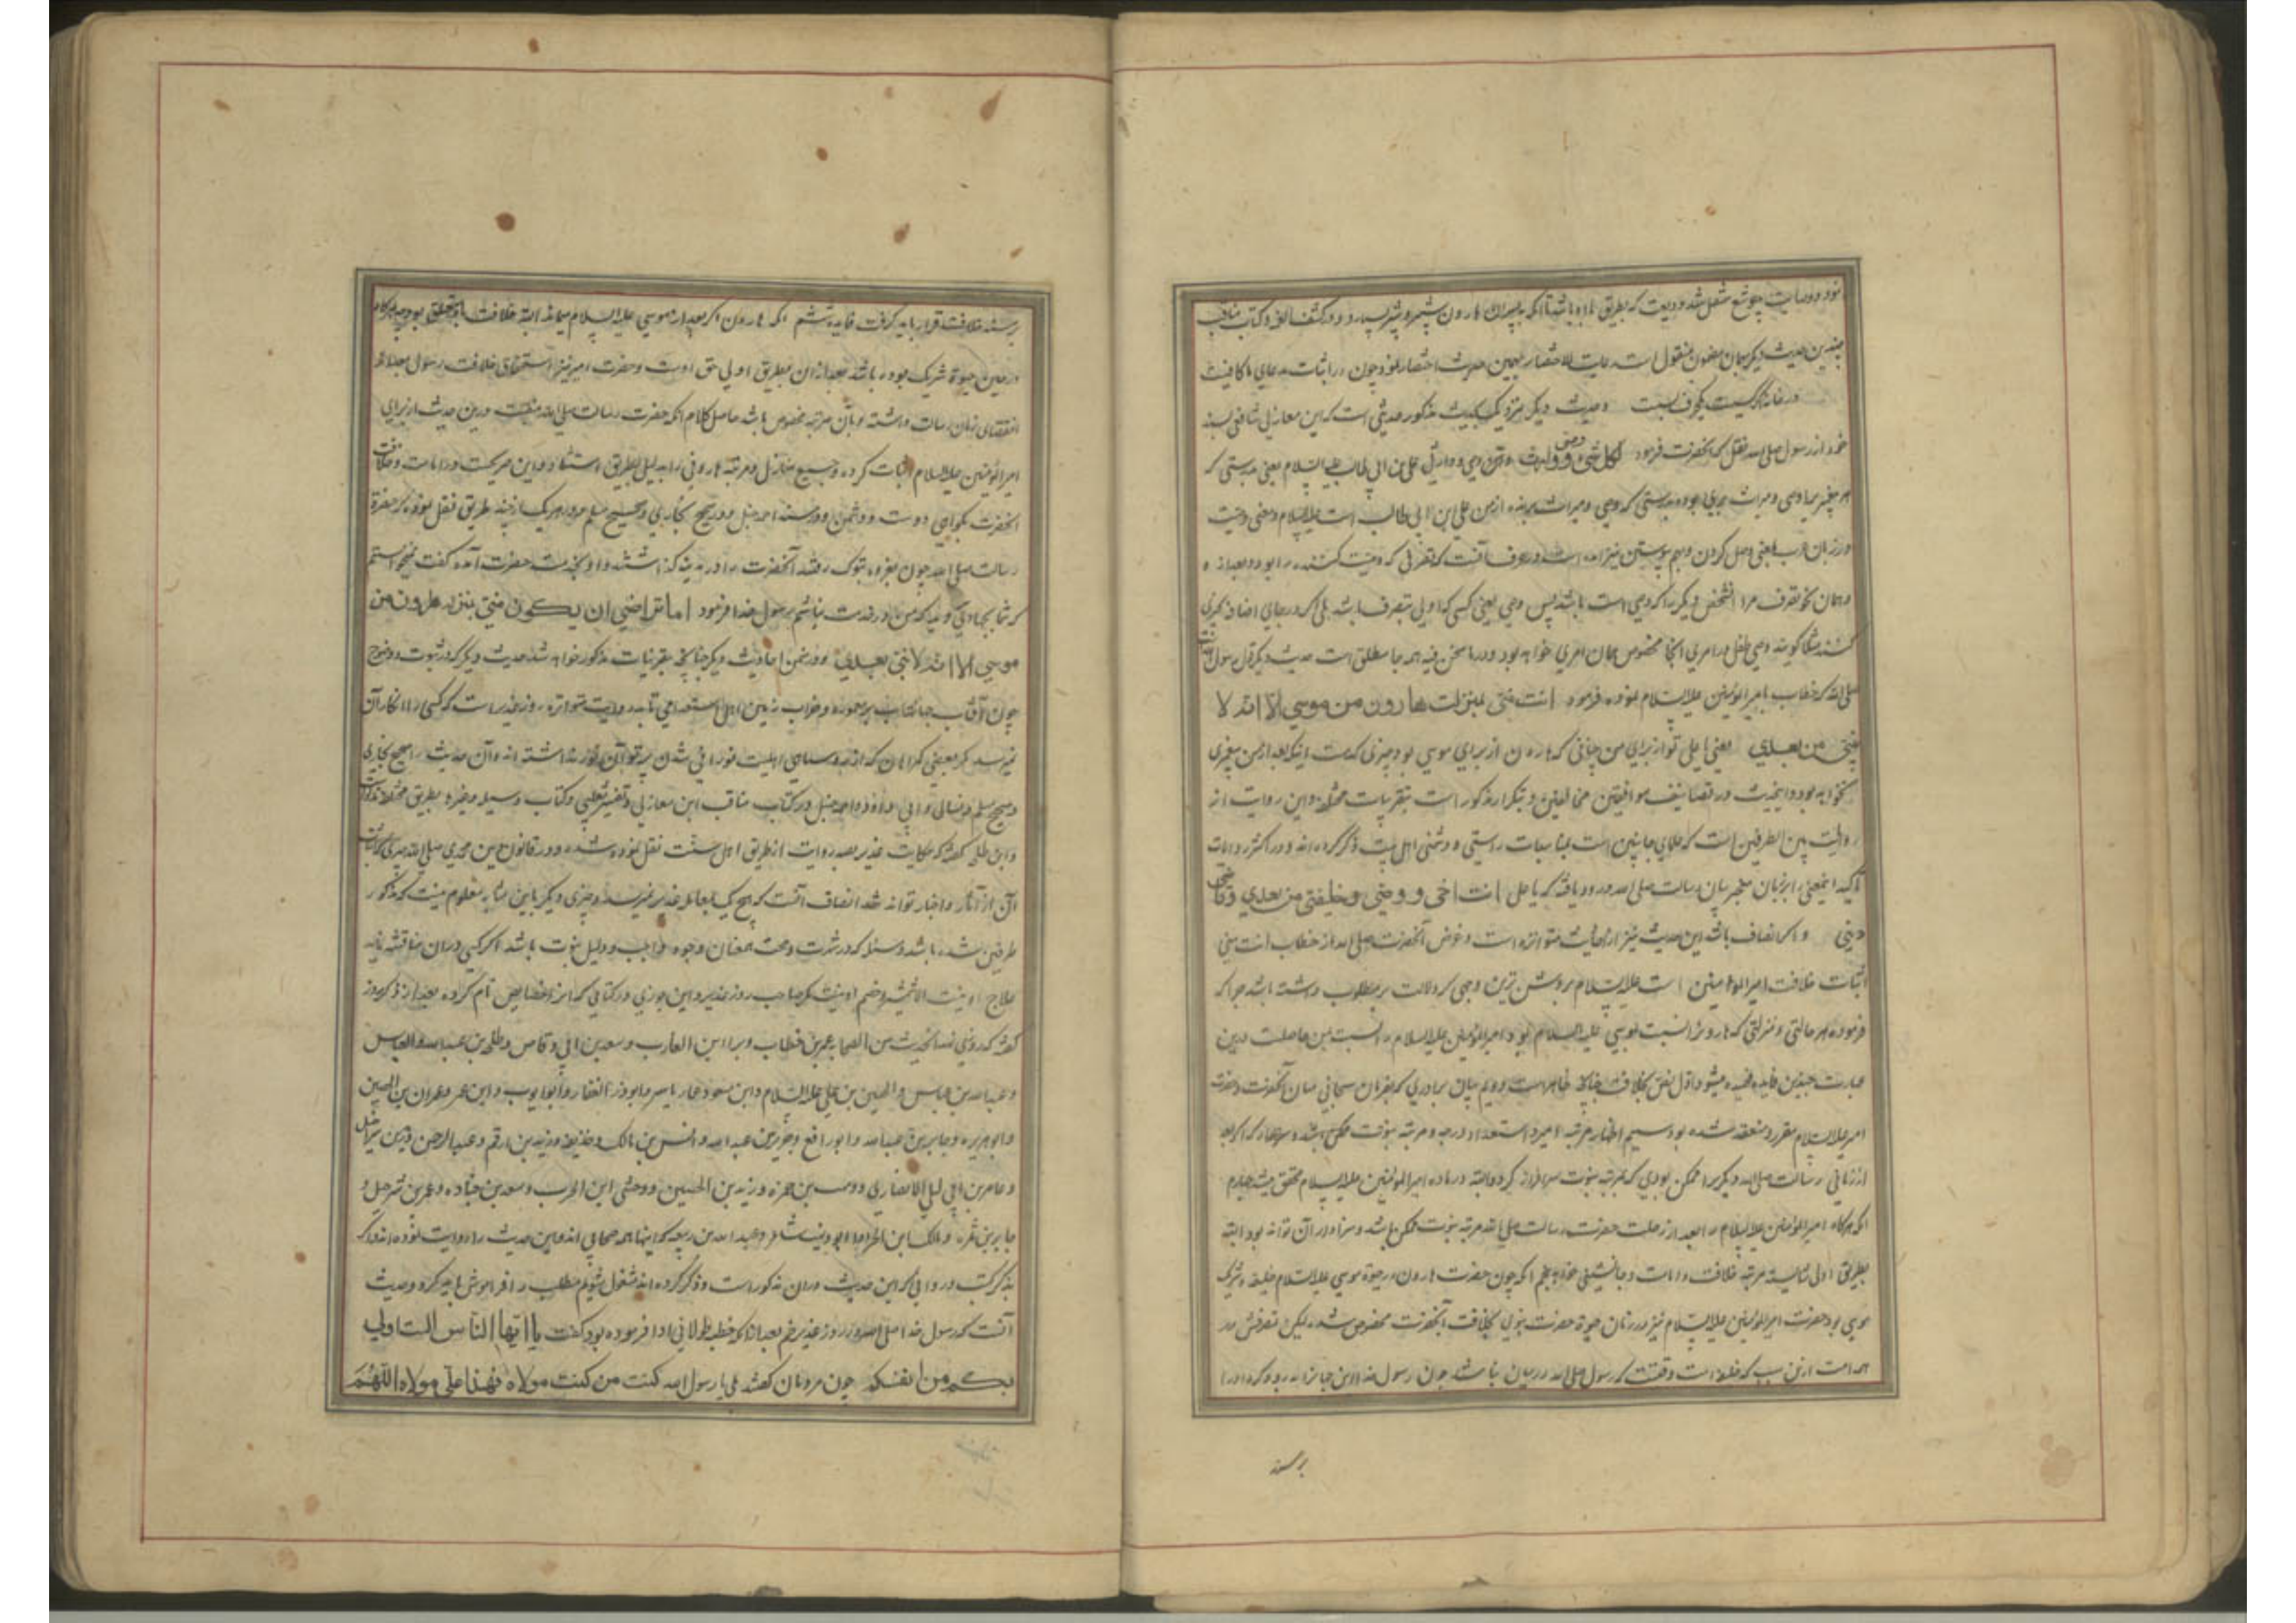 نمود و وصایت چو شمع مشعل شد و ودیعت که بطریق باشد تا آنکه به پسران هارون شبر و شبیر سپارد و در کشف الغمه و کتاب مناقب
چندین حدیث دیگر بهمان مضمون منقول است رعایت للاختصار بهمین حدیث اختصار نمود چون در اثبات مدعای ما کافیست
در خانه اگر کسیت یکحرف بست و حدیث دیگر نزدیک بحدیث مذکور حدیثی است که ابن مغازلی شافعی بسند
خود از رسول صلی الله نقل کرد که آنحضرت فرمود لکل نبی وصی و وارث و ان وصیی و وارثی علی بن ابی طالب علیه السلام یعنی بدرستی که
هر پیغمبری را وصی و میراث بری بوده بدرستی که وصی و میراث برنده از من علی بن ابی طالب است علیه السلام و معنی وصیت
در زبان عرب بمعنی وصل کردن و بهم پیوستن نیز آمده است و در عرف آنست که تصرفی که وصیت کننده را بود و بعد از و
و همان نحو تصرف مرا آن شخص دیگر را که وصی است باشد پس وصی یعنی کسی که اولی بتصرف باشد بلی اگر در جای اضافه بچیزی
کنند مثلا گویند وصی طفل در امری آنجا مخصوص بهمان امری خواهد بود و در ما نحن فیه همه جا مطلق است حدیث دیگر قول رسول
صلی الله که خطاب بامیر المؤمنین علیه السلام نموده فرمود انت منی بمنزلت هارون من موسی الا انه لا
نبی من بعدی یعنی یا علی تو از برای من چنانی که هارون از برای موسی بود چیزی که هست اینکه بعد از من پیغمبری
نخواهد بود و اینحدیث در تصانیف موافقین مخالفین و بتکرار مذکور است بتقریبات مختلفه و این روایت از
روایت بین الطرفین است که علمای جانبین است بمناسبات راستی و دشمنی اهل بیت ذکر کرده اند و در اکثر روایات
تاکید اینمعنی را بر زبان معجز بیان رسالت صلی الله ورود یافته که یا علی انت اخی و وصیی و خلیفتی من بعدی و قاضی
دینی و اگر انصاف باشد این حدیث نیز از احادیث متواتره است و غرض آنحضرت صلی الله از خطاب انت منی
اثبات خلافت امیر المؤمنین است علیه السلام بروشن ترین وجهی که دلالت بر مطلوب داشته باشد چرا که
فرموده هر حالتی و منزلتی که هارون را نسبت بموسی علیه السلام بود امیر المؤمنین علیه السلام را نسبت بمن حاصلست درین
عبارت چندین فایده فهمیده میشود اول نص بخلافت چنانچه ظاهر است دویم بیان برادری که بفرمان سبحانی میان آنحضرت و حضرت
امیر علیه السلام مقرر و منعقد شده بود سیم اظهار مرتبه امیر و استعداد درجه و مرتبه نبوت ممکن باشد
از زمانی رسالت صلی الله دیگر را ممکن بودی که مرتبه نبوت سرافراز گردد البته در ماده امیر المؤمنین علیه السلام محقق میشد چهارم
آنکه هرگاه امیر المؤمنین علیه السلام را بعد از رحلت حضرت رسالت صلی الله مرتبه نبوت ممکن باشد و سزاوار آن تواند بود البته
بطریق اولی شایسته مرتبه خلافت و امامت و جانشینی خواهد پنجم آنکه چون حضرت هارون در حیوة موسی علیه السلام خلیفه و شریک
موسی بود حضرت امیر المؤمنین علیه السلام نیز در زمان حیوة حضرت نبوی بخلافت آنحضرت مخصوص شده لیکن تصرفش در
همه امت ازین سبب که وقتست که رسول صلی الله در میان نباشد چون رسول خدا ازین جهان بدر رود که او را
بر مسند
بر مسند خلافت قرار باید گرفت فایده ششم آنکه هارون اگر بعد از موسی علیه السلام میماند البته خلافت باو متعلق بود چه هرگاه
در حین حیوة شریک بوده باشد بعد از آن بطریق اولی حق اوست و حضرت امیر نیز استحقاق خلافت رسول بعد از
انقضای زمان رسالت داشته و بآن مرتبه مخصوص باشد حاصل کلام آنکه حضرت رسالت صلی الله درین حدیث از برای
امیر المؤمنین علیه السلام اثبات کرده و جمیع منازل و مرتبه هارونی را به دلیل بطریق استثنا و این صریحست در امامت و خلافت
آنحضرت بگواهی دوست و دشمن و در مسند احمد حنبل و در صحیح بخاری و صحیح مسلم در هر یک از چند طریق نقل بوده که حضرة
رسالت صلی الله چون بغزوه تبوک رفتند آنحضرت را در مدینه گذاشتند و او بخدمت حضرت آمده گفت نمیخواستم
که شما بجهادی روید که من در خدمت نباشم رسول خدا فرمود اما ترضی ان یکون منی بمنزله هارون من
موسی الا انه لا نبی بعدی و در ضمن احادیث دیگر چنانچه بتقریبات مذکور خواهد شد حدیث دیگر که در ثبوت و وضوح
چون آفتاب جهانتاب بر معموره و خراب زمین اهل استعداد می تابد روایت متواتره روز غدیر است که کسی را انکار آن
نمیرسد مگر بعضی گمراهان که اهلیت نورانی شدن پرتو آن نور نداشته اند و آن حدیث را صحیح بخاری
و صحیح مسلم و نسائی و ابی داود و احمد حنبل در کتاب مناقب ابن مغازلی و تفسیر ثعلبی و کتاب وسیله و غیره بطریق مختلفه
و ابن طلحه گفته که حکایت غدیر بصد روایت از طریق اهل سنت نقل نموده شده و در قانون دین محمدی صلی الله
آن از آثار و اخبار تواند شد انصاف آنست که هیچ یک بمعامله غدیر نمیرسد و چیزی دیگر باین مثابه معلوم نیست که مذکور
طرفین شده باشد و سندی که در شدت و صحت بمعنان وجوه واجب و دلیل نبوت باشد اگر کسی در آن مناقشه نماید
علاج او نیست الا شمشیر و خصم او نیست مگر صاحب روز غدیر و ابن جوزی در کتابی که آنرا خصایص نام کرده بعد از ذکر روز
گفته که روی هذا الحدیث من الصحابه عمر بن خطاب و براء ابن العازب و سعد بن ابی وقاص و طلحه بن عبدالله و العباس
و عبدالله بن عباس و الحسین بن علی علیه السلام و ابن مسعود و عمار یاسر و ابو ذر الغفار و ابو ایوب و ابن عمر و عمران بن الحصین
و ابو هریره و جابر بن عبدالله و ابو رافع و جریر بن عبدالله و انس بن مالک و حذیفه و زید بن ارقم و عبدالرحمن
و عامر بن ابی لیلی الانصاری و وهب بن حمزه و زید بن الحسین و وحشی ابن الحرب و سعد بن جناده و عمر بن شرحیل و
جابر بن سمره و مالک ابن الحویرث و ابو ذویب شاعر و عبدالله بن ربیعه که اینها همه صحابی اند و این حدیث را روایت نموده اند و اگر
بذکر کتب و روایی که این حدیث در آن مذکور است و ذکر کرده اند مشغول شویم مطلب را فراموش باید کرد و حدیث
آنست که رسول خدا صلی الله در روز غدیر خم بعد از آنکه خطبه طولانی ادا فرموده بود گفت یا ایها الناس الست اولی
بکم من انفسکم چون مردمان گفتند بلی یا رسول الله گفت من کنت مولاه فهذا علی مولاه اللهم